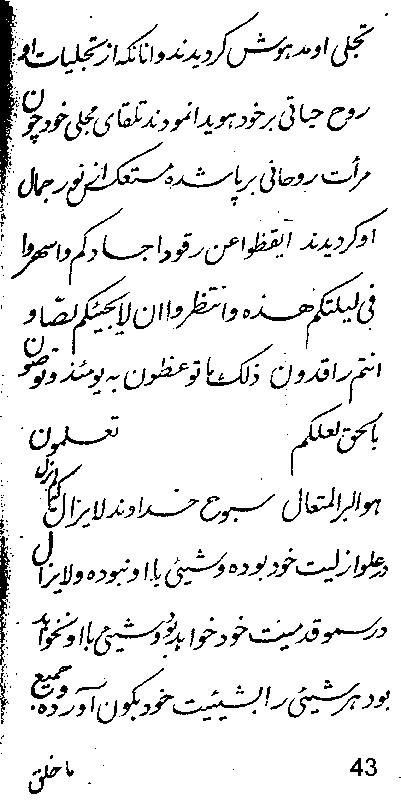 تجلی او مدهوش گردیدند و انانکه از تجلیات او
روح حیاتی بر خود هویدا نمودند تلقای مجلی خود چون
مرآت روحانی بر پا شده مستعکس از نور جمال
او گردیدند ایقظوا عن رقود اجسادکم و اسهروا
فی لیلتکم هذه و انتظروا ان لا یجیئکم لصّا و
انتم راقدون ذلک ما توعظون به یومئذ و توصون
بالحق لعلکم تعلمون
هو البر المتعال سبوح خداوند لایزال
در علو ازلیت خود بوده و شیئی با او نبوده و لایزال
در سمو قدمیت خود خواهد بود و شیئی با او نخواهد
بود هر شیئی را بشیئیت خود بکون آورده و جمیع
ما خلق
43